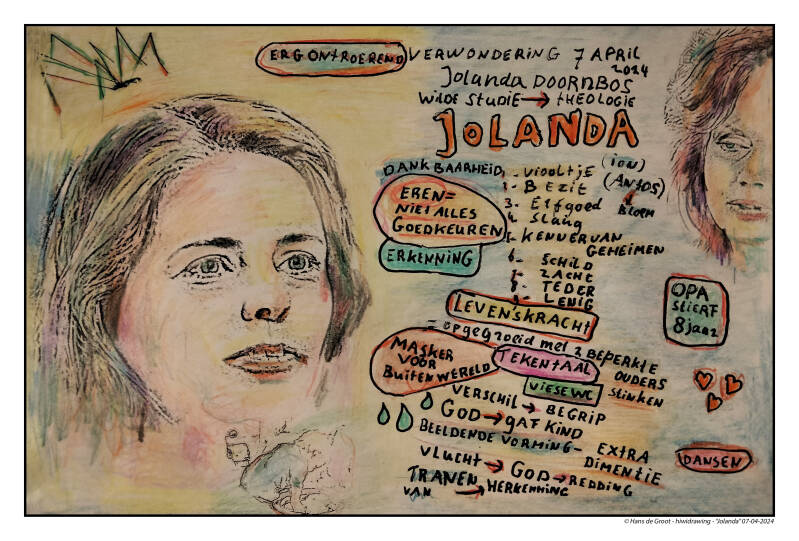 ERG ONTROEREND VERWONDERING 7 APRIL
2024
Jolanda DOORNBOS
WILDE STUDIE → THEOLOGIE
JOLANDA
DANKBAARHEID
1- VIOOLTJE (ION)
2- BEZIT (ANTOS)
↓ BLOEM
3- Erfgoed
4- Slang
5- KENNER VAN
GEHEIMEN
6- SCHILD
7- ZACHT
8- TEDER
9- LENIG
EREN=
NIET ALLES
GOEDKEUREN
ERKENNING
OPA
STIERF
8 jaar
LEVENSKRACHT
= opgegroeid met 2 BEPERKTE
OUDERS
MASKER
VOOR
BUITENWERELD
TEKENTAAL
VIESE WC STINKEN
VERSCHIL → BEGRIP
GOD → gAF KIND
BEELDENDE VORMING -
EXTRA
DIMENTIE
DANSEN
VLUCHT → GOD → REDDING
TRANEN
VAN → HERKENNING
© Hans de Groot - hiwidrawing - "Jolanda" 07-04-2024